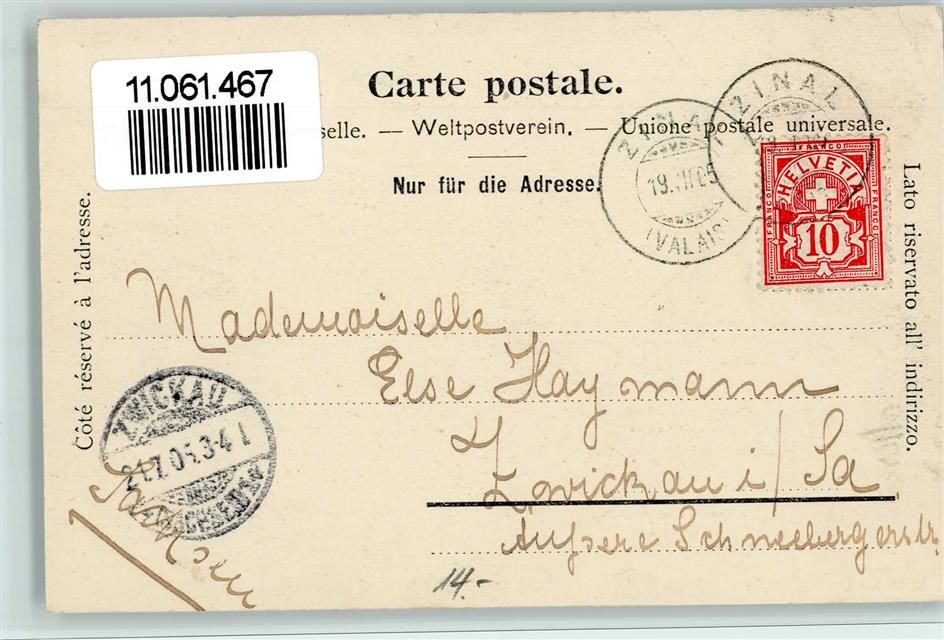 11.061.467
Carte postale.
selle. — Weltpostverein. — Unione postale universale.
Nur für die Adresse.
Côté réservé à l'adresse.
Lato riservato all' indirizzo.
ZINAL
19.VII.05
(VALAIS)
ZINAL
FRANCO
HELVETIA
FRANCO
FRANCO
10
Mademoiselle
Else Haymann
Zwickau i/Sa
Aufsere Schneebergerstr.
ZWICKAU
21.7.05.3-4
(SACHSEN)
Sachsen
14.-